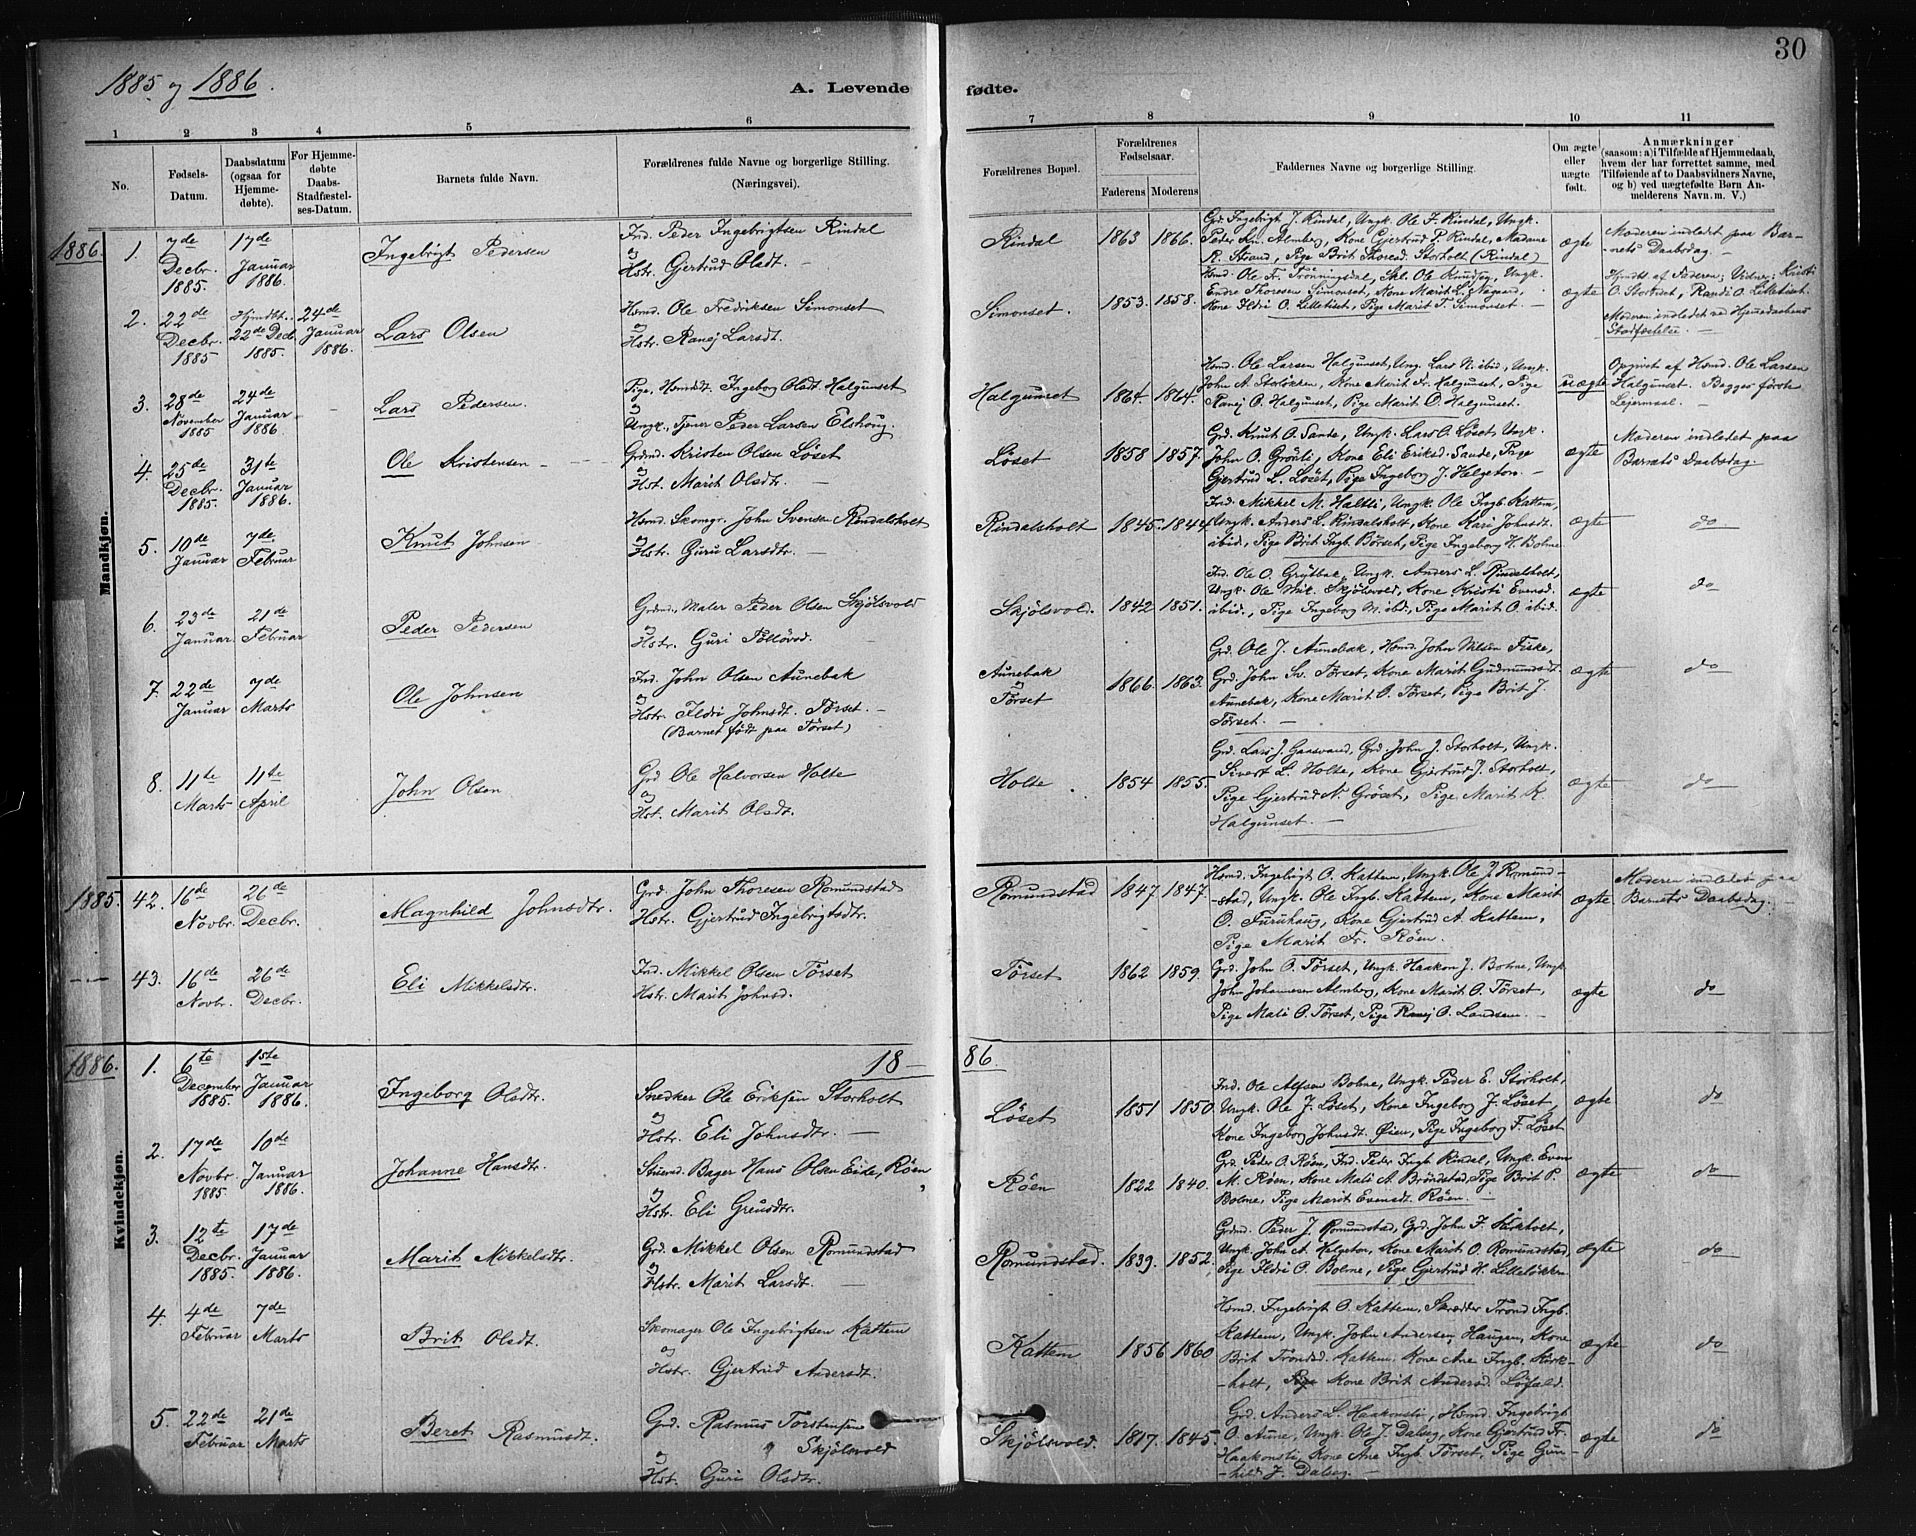 30
1885 og 1886.
A. Levende fødte.
1 2 3 4 5 6 7 8 9 10 11
No.
Fødsels-Datum.
Daabsdatum (ogsaa for Hjemme-døbte).
For Hjemme-døbte Daabs-Stadfæstel-ses-Datum.
Barnets fulde Navn.
Forældrenes fulde Navne og borgerlige Stilling.
(Næringsvei).
Forældrenes Bopæl.
Forældrenes Fødselsaar.
Faderens Moderens
Faddernes Navne og borgerlige Stilling.
Om ægte eller uægte født.
Anmærkninger
(saasom: a) i Tilfælde af Hjemmedaab,
hvem der har forrettet samme, med
Tilføiende af to Daabsvidners Navne,
og b) ved uægtefødte Børn An-
melderens Navn. m. V.)
Mandkjøn.
1886.
1. 7de Decbr. 1885. 17de Januar 1886. Ingebrigt Pedersen
Ind. Peder Ingebrigtsen Rindal
og
Hstr. Gjertrud Olsdt. —
Rindal 1863 1866.
Grd. Ingebrigt J. Rindal, Ungk. Ole F. Rindal, Ungk.
Peder Sn. Almberg, Kone Gjertrud P. Rindal, Madame
R. Strand, Pige Brit Thoresd. Storholt (Rindal)
ægte
Moderen indledet paa Bar-
nets Daabsdag. —
2. 22de Decbr. 1885 Hjmdbt. 22de Dec. 1885. 24de Januar 1886. Lars Olsen
Hsmd. Ole Fredriksen Simonset
og
Hstr. Ranej Larsdt.
Simonset. 1853. 1858.
Hsmd. Ole Fr. Trönningsdal, Skl. Ole Knudsen, Ungk.
Endre Thoresen Simonset, Kone Marit L. Nygaard,
Kone Ildri O. Lilletiset, Pige Marit T. Simonset. —
ægte
Hjmdt. af Faderen; Vidner: Kristi
O. Storkiset, Randi O. Lilletiset.
Moderen indledet ved Hjemmedaabens
Stadfæstelse. —
3. 28de November 1885 24de Januar 1886. Lars Pedersen.
Pige, Hsmdt. Ingeborg Olsdt. Halgunset
og
Ungk., Tjener Peder Larsen Elshoug.
Halgunset 1864. 1864.
Hsmd. Ole Larsen Halgunset, Ung. Lars N. ibid, Ungk.
John A. Storlökken, Kone Marit Fr. Halgunset, Pige
Ranej O. Halgunset, Pige Marit O. Halgunset.
uægte
Opgivet af Hsmd. Ole Larsen
Halgunset. Begges förste
Leiermaal. —
4. 25de Decbr. 1885. 31te Januar 1886. Ole Kristensen —
Grdmd. Kristen Olsen Löset
og
Hst. Marit Olsdtr. —
Löset 1858 1857.
Grd. Knut O. Sande, Ungk. Lars O. Löset, Ungk.
John O. Grönli, Kone Eli Eriksd. Sande, Pige
Gjertrud L. Löset, Pige Ingeborg J. Helgeton. —
ægte
Moderen indledet paa
Barnets Daabsdag.
5. 10de Januar 7de Februar Knut Johnsen
Hsmd. Skomgr. John Svensen Rindalsholt
og
Hstr. Guru Larsdtr. —
Rindalsholt 1845. 1844.
Ind. Mikkel M. Haltli, Ungk. Ole Ingb. Kattem,
Ungk. Anders L. Rindalsholt, Kone Kari Johnsdt.
ibid, Pige Brit Ingb. Börset, Pige Ingeborg H. Bolme
ægte do
6. 23de Januar. 21de Februar Peder Pedersen
Grdmd., Maler Peder Olsen Skjölsvold
og
Hstr. Guri Tollövsd. —
Skjölsvold. 1842 1851.
Ind. Ole O. Grytbak, Ungk. Anders L. Rindalsholt,
Ungk. Ole Mik. Skjölsvold, Kone Kristi Evensd.
ibid, Pige Ingeborg N. ibd, Pige Marit O. ibid.
ægte do
7. 22de Januar 7de Marts Ole Johnsen
Ind. John Olsen Aunebak
og
Hstr. Ildri Johnsdt. Törset. —
(Barnet födt paa Törset)
Aunebak og Törset 1866. 1863.
Grd. Ole J. Aunebak, Hsmd. John Nilsen Fiske,
Grd. John Sv. Törset, Kone Marit Gudmundsdt.
Aunebak, Kone Marit O. Törset, Pige Brit J.
Törset. —
ægte do
8. 11te Marts 11te April John Olsen
Grd Ole Halvorsen Holte
og
Hst. Marit Olsdtr.
Holte 1854 1855.
Grd. Lars J. Gaasvand, Grd. John J. Storholt, Ungk.
Sivert L. Holte, Kone Gjertrud J. Storholt,
Pige Gjertrud N. Gröset, Pige Marit K.
Halgunset. —
ægte do
1885. 42. 16de Novbr. 26de Decbr. Magnhild Johnsdtr.
Grd. John Thoresen Romundstad
Hstr. Gjertrud Ingebrigtsdtr.
Romundstad 1847. 1847.
Hsmd. Ingebrigt O. Kattem, Ungk. Ole J. Romund-
stad, Ungk. Ole Ingb. Kattem, Kone Marit
O. Furuhaug, Kone Gjertrud A. Kattem,
Pige Marit Fr. Röen.
ægte
Moderen indledet paa
Barnets Daabsdag.
43. 16de Novbr. 26de Decbr. Eli Mikkelsdtr.
Ind. Mikkel Olsen Törset
Hstr. Marit Johnsd.
Törset 1862 1859.
Grd. John O. Törset, Ungk. Haakon J. Bolme, Ungk
John Johannesen Almberg, Kone Marit O. Törset,
Pige Mali O. Törset, Pige Ranej O. Landsem. —
ægte do
Kvindekjøn.
1886. 18—86.
1. 6te December 1885. 1ste Januar 1886. Ingeborg Olsdtr.
Snedker Ole Eriksen Storholt
og
Hstr. Eli Johnsdtr. —
Löset 1851 1850.
Ind. Ole Alfsen Bolme, Ungk. Peder E. Storholt,
Ungk. Ole J. Löset, Kone Ingeborg J. Löset,
Kone Ingeborg Johnsdt. Öien, Pige Ingeborg F. Löset
ægte do
2. 17de Novbr. 1885 10de Januar 1886. Johanne Hansdtr.
Bager Hans Olsen Eide, Röen
og
Hstr. Eli Greusdtr.
Röen 1822 1840.
Grd. Peder O. Röen, Ind. Peder Ingb. Rindal, Ungk. Even
M. Röen, Kone Mali A. Bröndstad, Pige Brit P.
Bolme, Pige Marit Evensdt. Röen. —
ægte do
3. 12te Decbr. 1885. 17de Januar 1886. Marit Mikkelsdtr.
Grd. Mikkel Olsen Romundstad
og
Hstr. Marit Larsdt. —
Romundstad. 1839. 1852.
Grdmd. Peder J. Romundstad, Grd. John F. Kirkholt,
Ungk. John A. Helgeton, Kone Marit O. Romundstad,
Pige Ildri O. Bolme, Pige Gjertrud H. Lilleløkken
ægte do
4. 4de Februar 7de Marts Brit Olsdt.
Skomager Ole Ingebrigtsen Kattem
og
Hstr. Gjertrud Andersdt.
Kattem 1856 1860
Hsmd. Ingebrigt O. Kattem, Skrædder Trond Ingb.
Kattem, Ungk. John Andersen Haugen, Kone
Brit Trondsd. Kattem, Kone Ane Ingb. Kirk-
holt, Kone Brit Andersd. Löfald.
ægte do
5. 22de Februar 21de Marts Beret Rasmusdt.
Grd. Rasmus Torstensen
Skjölsvold
og
Hst. Guri Olsdtr.
Skjölsvold. 1817. 1845.
Grd. Anders L. Haakonsli, Hsmd. Ingebrigt
O. Aune, Ungk. Ole J. Dalseg, Kone Gjertrud Fr.
Haakonsli, Kone Ane Ingb. Törset, Pige Gun-
hild J. Dalseg. —
ægte do